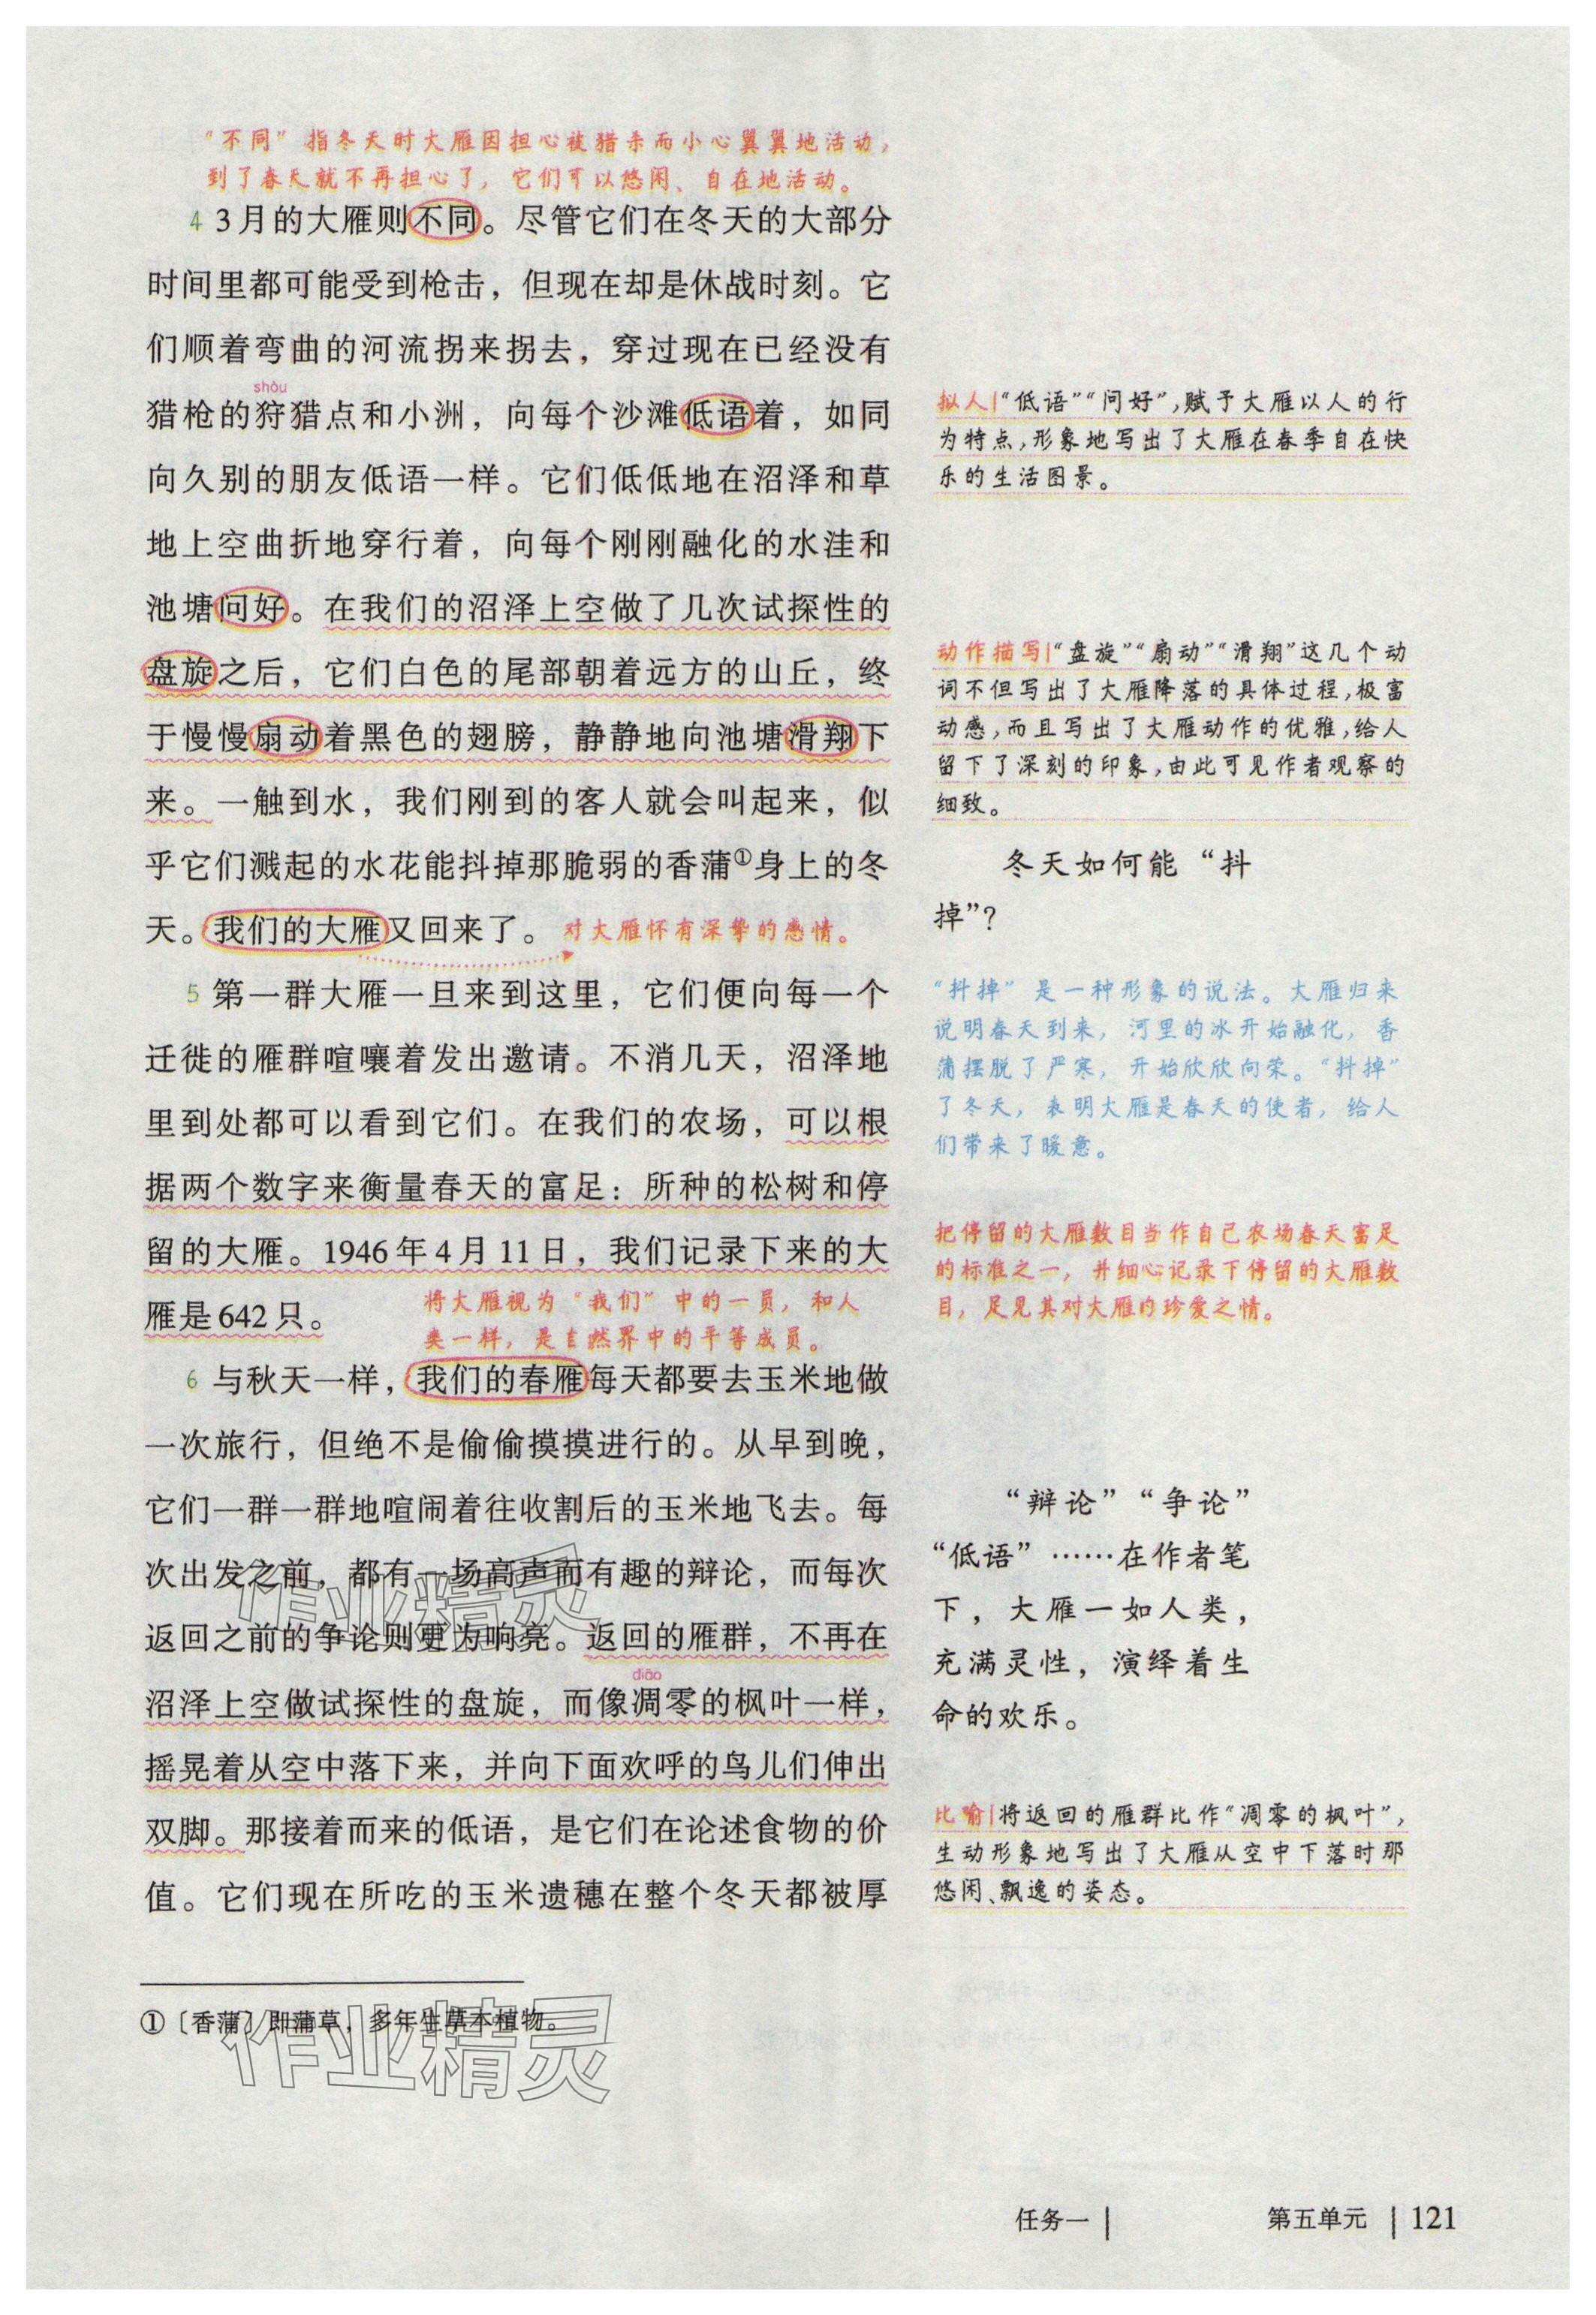 “不同”指冬天时大雁因担心被猎杀而小心翼翼地活动，
到了春天就不再担心了，它们可以悠闲、自在地活动。
4 3月的大雁则不同。尽管它们在冬天的大部分
时间里都可能受到枪击，但现在却是休战时刻。它
们顺着弯曲的河流拐来拐去，穿过现在已经没有
shòu
猎枪的狩猎点和小洲，向每个沙滩低语着，如同
向久别的朋友低语一样。它们低低地在沼泽和草
地上空曲折地穿行着，向每个刚刚融化的水洼和
池塘问好。在我们的沼泽上空做了几次试探性的
盘旋之后，它们白色的尾部朝着远方的山丘，终
于慢慢扇动着黑色的翅膀，静静地向池塘滑翔下
来。一触到水，我们刚到的客人就会叫起来，似
乎它们溅起的水花能抖掉那脆弱的香蒲①身上的冬
天。我们的大雁又回来了。对大雁怀有深挚的感情。
5 第一群大雁一旦来到这里，它们便向每一个
迁徙的雁群喧嚷着发出邀请。不消几天，沼泽地
里到处都可以看到它们。在我们的农场，可以根
据两个数字来衡量春天的富足：所种的松树和停
留的大雁。1946年4月11日，我们记录下来的大
雁是642只。
将大雁视为“我们”中的一员，和人
类一样，是自然界中的平等成员。
6 与秋天一样，我们的春雁每天都要去玉米地做
一次旅行，但绝不是偷偷摸摸进行的。从早到晚，
它们一群一群地喧闹着往收割后的玉米地飞去。每
次出发之前，都有一场高声而有趣的辩论，而每次
返回之前的争论则更为响亮。返回的雁群，不再在
diāo
沼泽上空做试探性的盘旋，而像凋零的枫叶一样，
摇晃着从空中落下来，并向下面欢呼的鸟儿们伸出
双脚。那接着而来的低语，是它们在论述食物的价
值。它们现在所吃的玉米遗穗在整个冬天都被厚
拟人|“低语”“问好”，赋予大雁以人的行
为特点，形象地写出了大雁在春季自在快
乐的生活图景。
动作描写|“盘旋”“扇动”“滑翔”这几个动
词不但写出了大雁降落的具体过程，极富
动感，而且写出了大雁动作的优雅，给人
留下了深刻的印象，由此可见作者观察的
细致。
冬天如何能“抖
掉”？
“抖掉”是一种形象的说法。大雁归来
说明春天到来，河里的冰开始融化，香
蒲摆脱了严寒，开始欣欣向荣。“抖掉”
了冬天，表明大雁是春天的使者，给人
们带来了暖意。
把停留的大雁数目当作自己农场春天富足
的标准之一，并细心记录下停留的大雁数
目，足见其对大雁的珍爱之情。
“辩论”“争论”
“低语”……在作者笔
下，大雁一如人类，
充满灵性，演绎着生
命的欢乐。
比喻|将返回的雁群比作“凋零的枫叶”，
生动形象地写出了大雁从空中下落时那
悠闲、飘逸的姿态。
作业精灵
①〔香蒲〕即蒲草，多年生草本植物。
作业精灵
任务一 | 第五单元 | 121